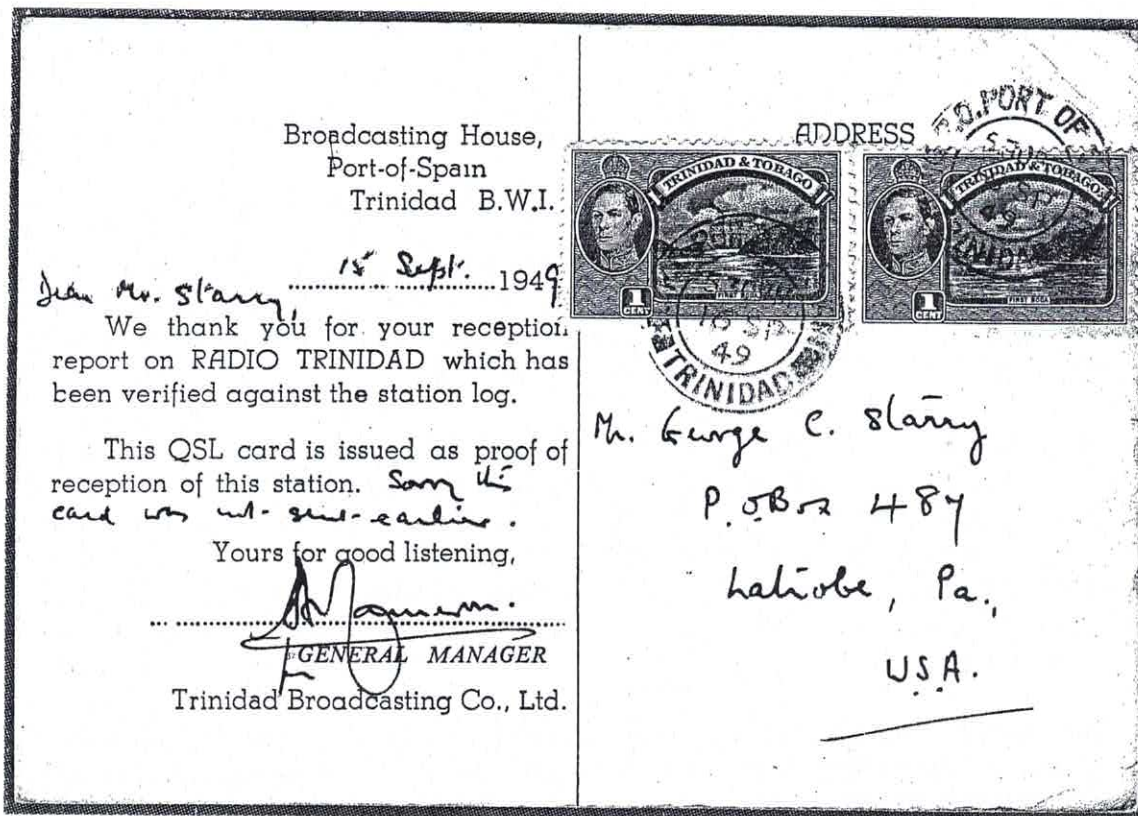 Broadcasting House,
Port-of-Spain
Trinidad B.W.I.
15 Sept. 1949
Dear Mr. Starry,
We thank you for your reception
report on RADIO TRINIDAD which has
been verified against the station log.
This QSL card is issued as proof of
reception of this station. Sorry this
card was not sent earlier.
Yours for good listening,
GENERAL MANAGER
Trinidad Broadcasting Co., Ltd.
ADDRESS
TRINIDAD & TOBAGO
FIRST BOCA
1 CENT
TRINIDAD & TOBAGO
FIRST BOCA
1 CENT
G.P.O. PORT OF
SP
49
16 SP
49
TRINIDAD
Mr. George C. Starry
P.O Box 487
Latrobe, Pa.,
U.S.A.